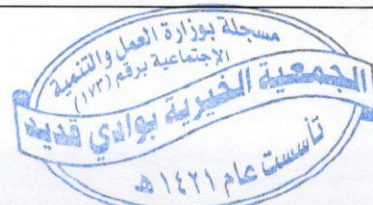 مسجلة بوزارة العمل والتنمية
الاجتماعية برقم (١٧٣)
الجمعية الخيرية بوادي قديد
تأسست عام ١٤٢١هـ